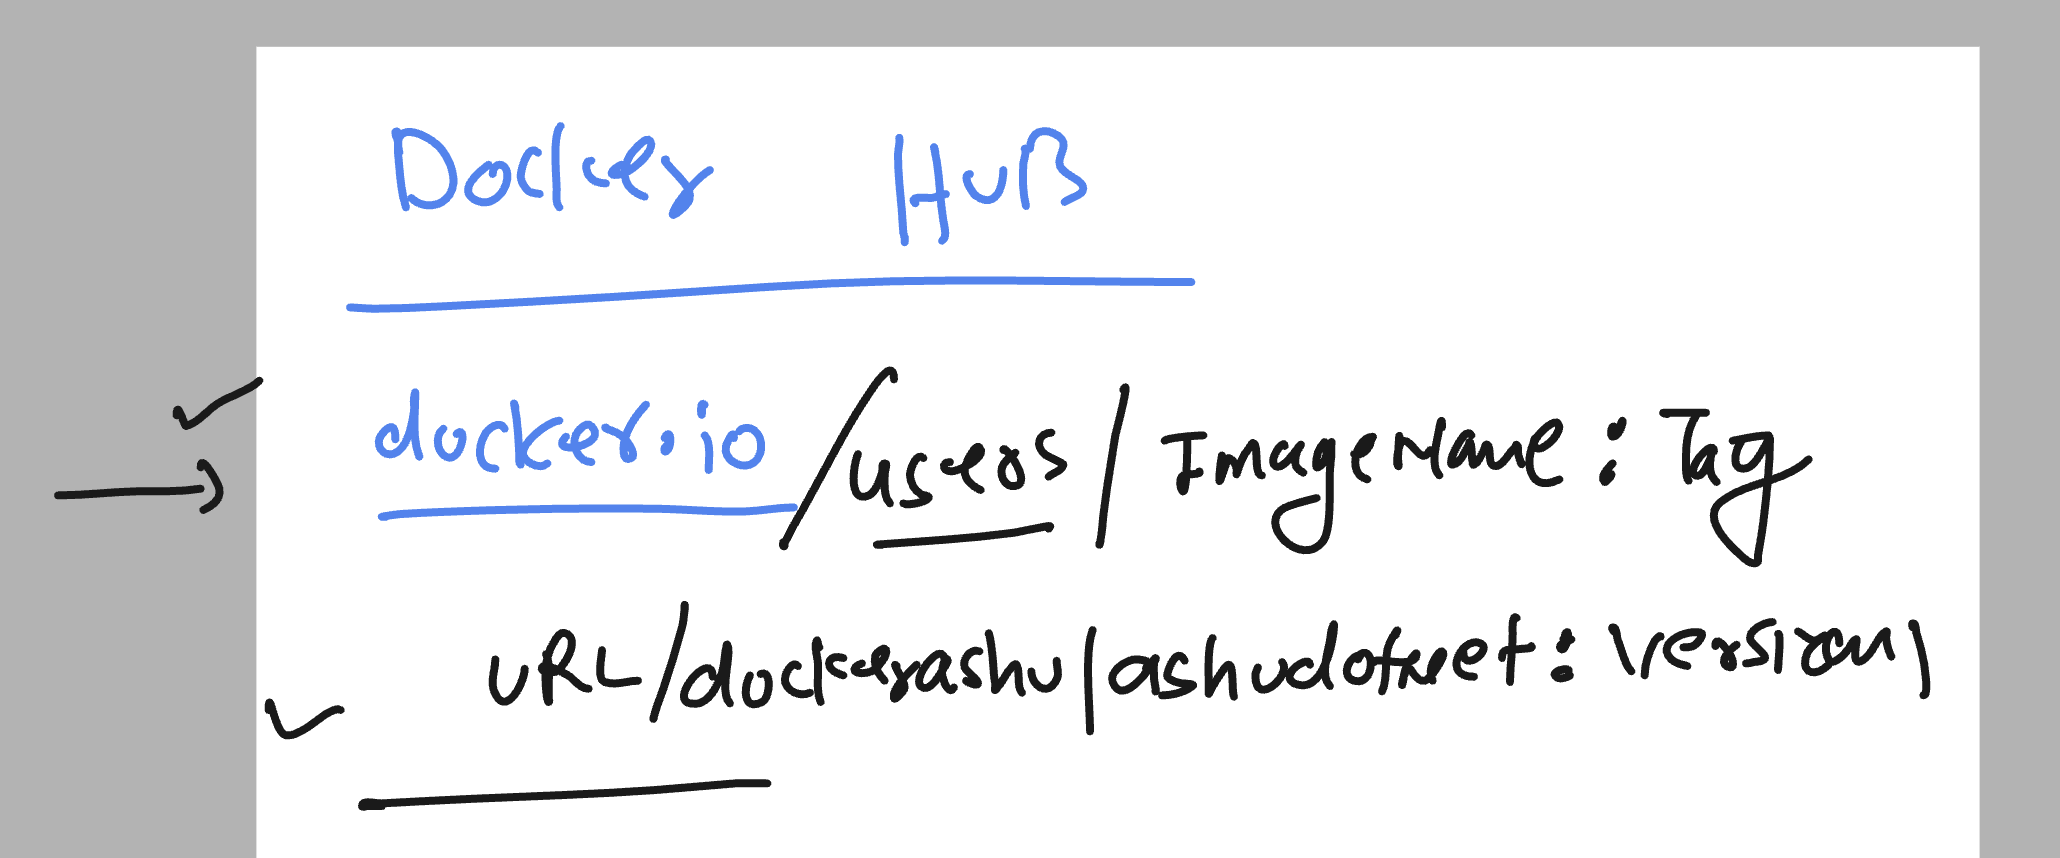 Docker HuB
docker.io/users/ImageName:Tag
URL/dockerashu/ashudotnet:version1